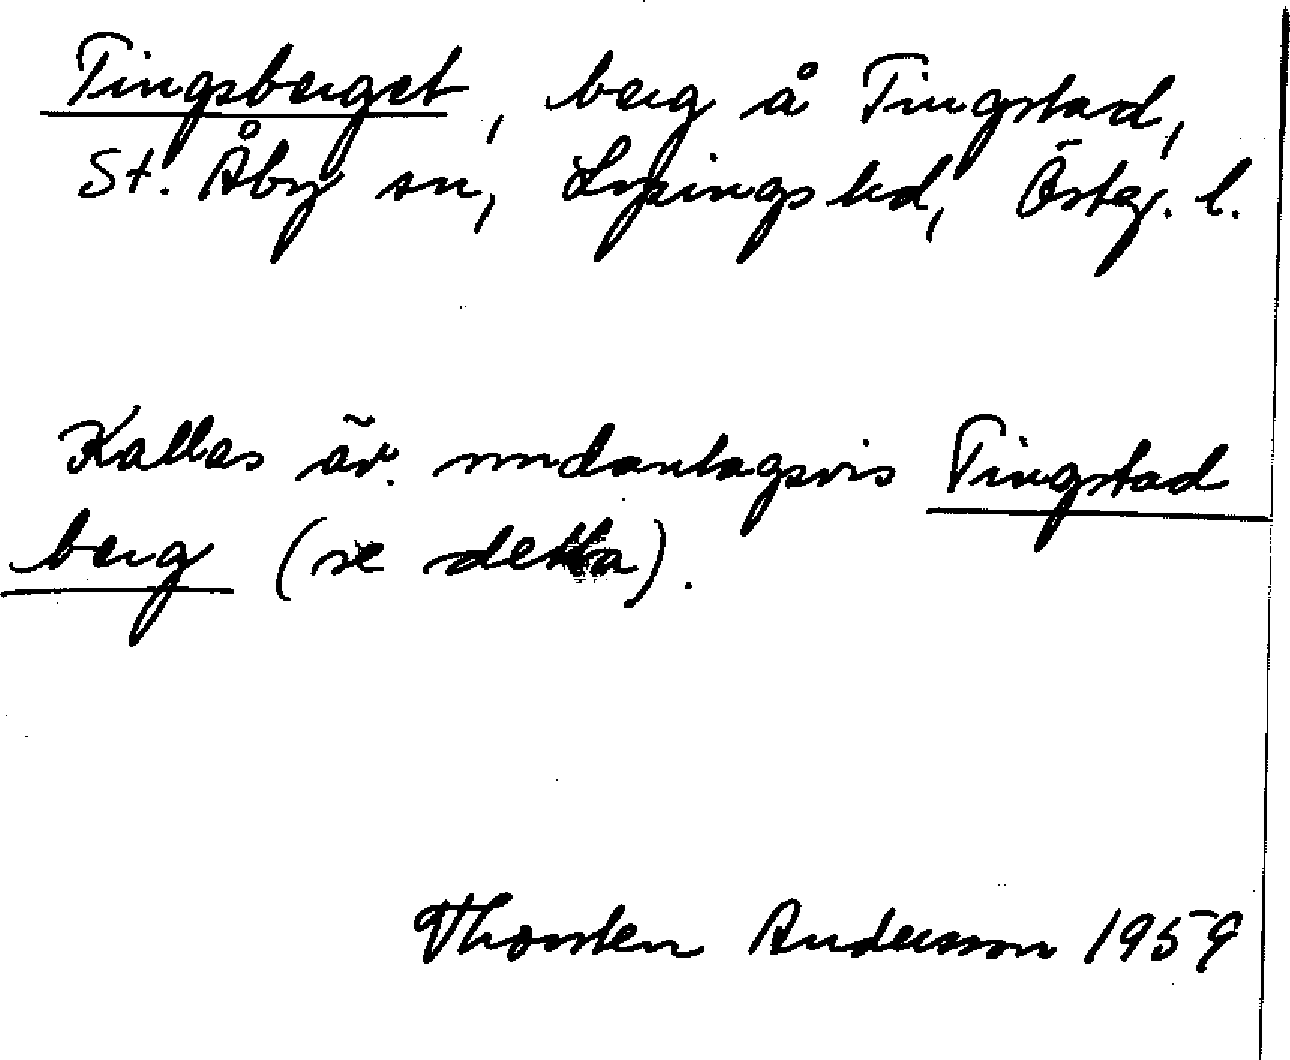 Tingsberget, berg å Tingstad,
St. Åby sn, Lysings hd, Österg. l.
Kallas äv. undantagsvis Tingstad
berg (se detta).
Thorsten Andersson 1959